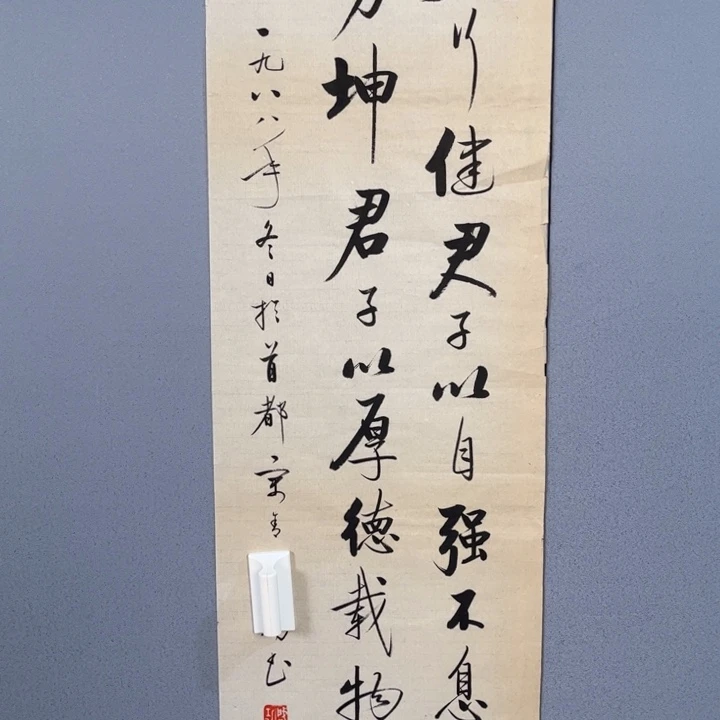 行健君子以自强不息
坤君子以厚德载物
一九八八年冬日于首都